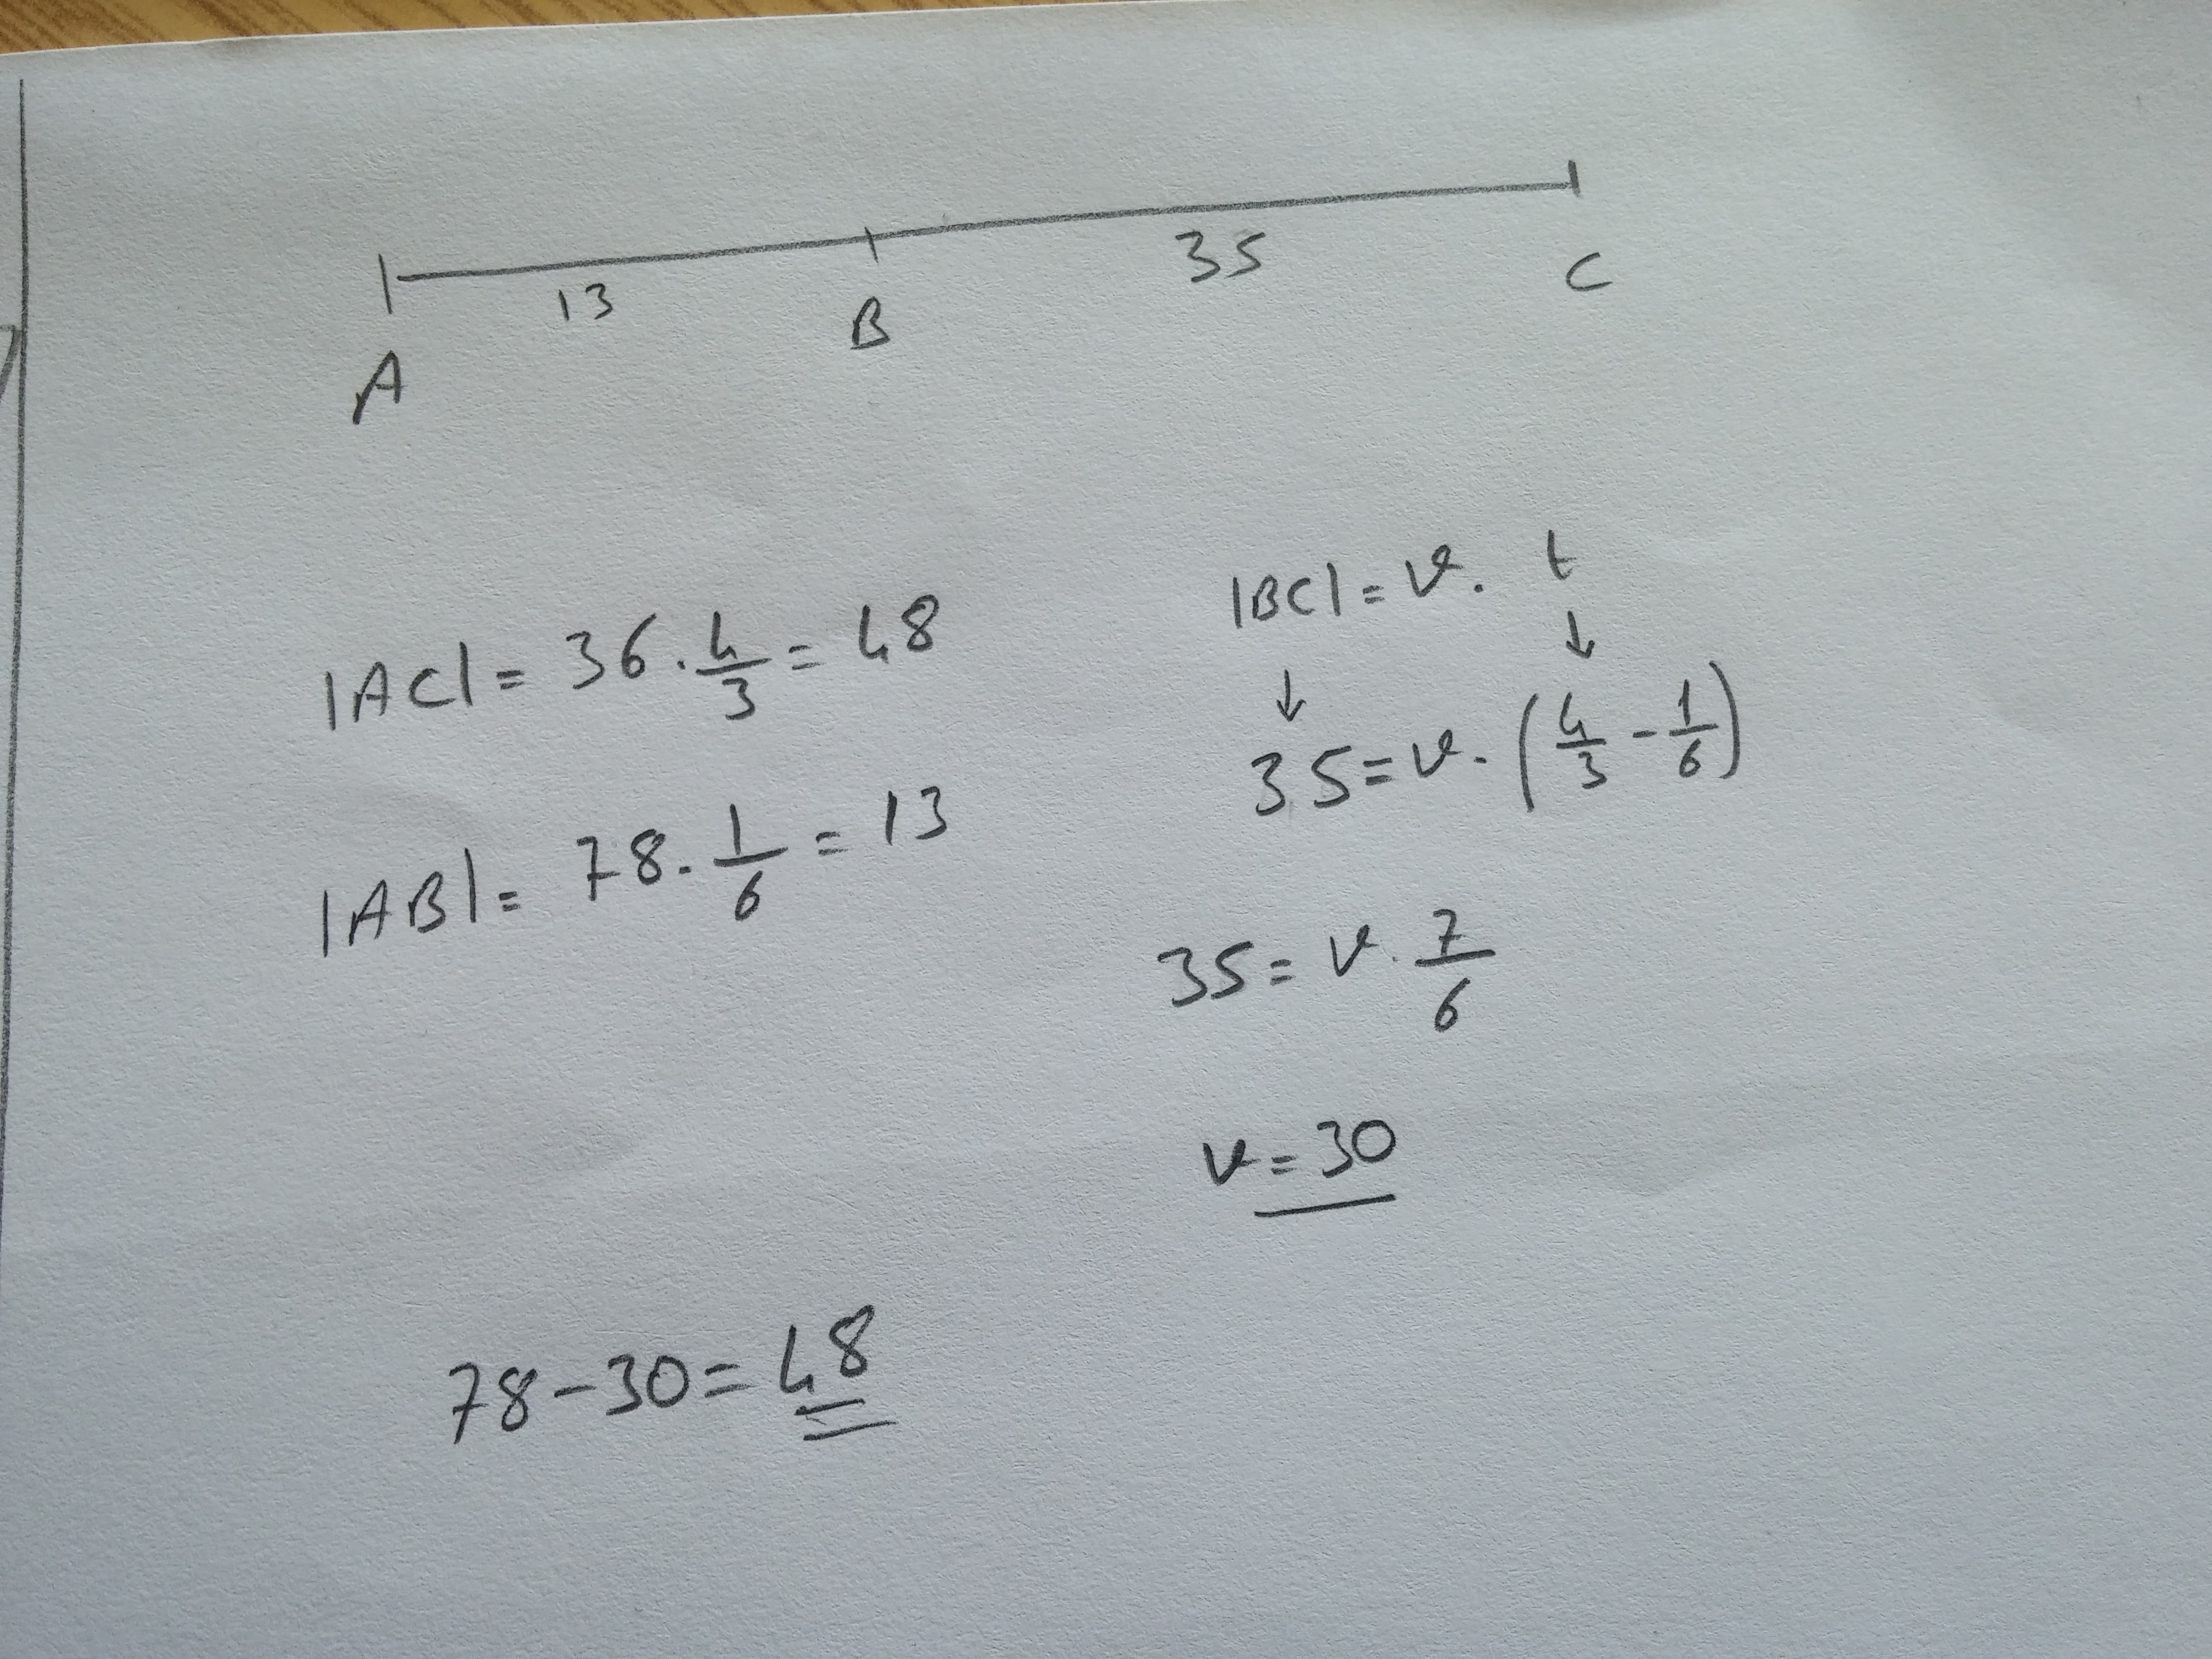 13 35
A B C
|AC| = 36 · 4/3 = 48
|AB| = 78 · 1/6 = 13
|BC| = v · t
↓ ↓
35 = v · (4/3 - 1/6)
35 = v · 7/6
v = 30
78 - 30 = 48